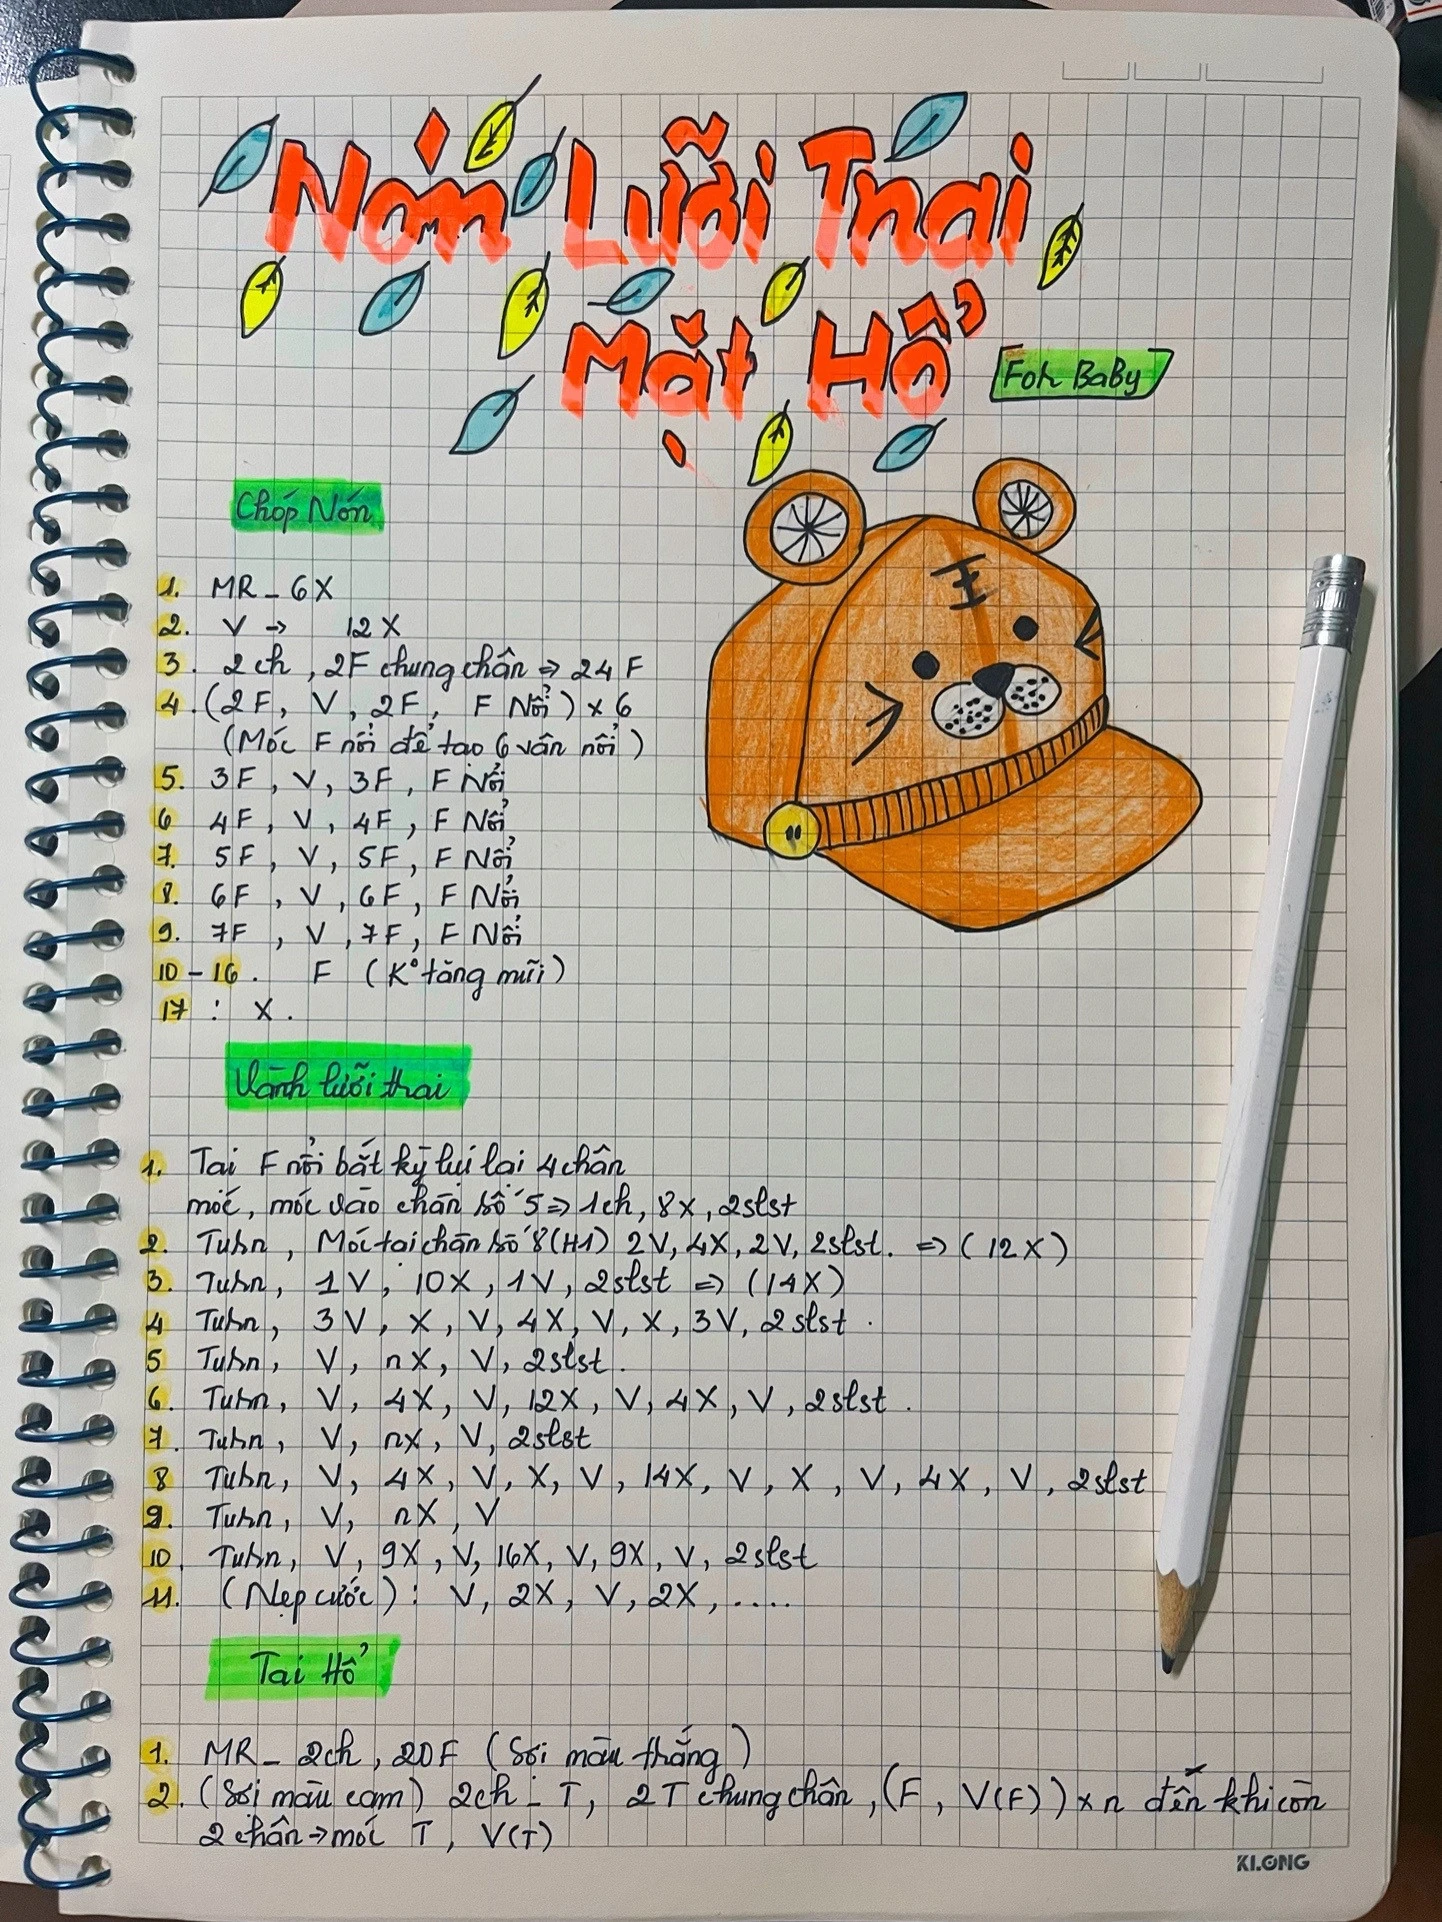 Nón Lưỡi Trai
Mặt Hổ
For BaBy
Chóp Nón
1. MR - 6X
2. V → 12X
3. 2ch, 2F chung chân ⇒ 24F
4. (2F, V, 2F, F Nổi) × 6
(Móc F nổi để tạo 6 vân nổi)
5. 3F, V, 3F, F Nổi
6 4F, V, 4F, F Nổi
7. 5F, V, 5F, F Nổi
8. 6F, V, 6F, F Nổi
9. 7F, V, 7F, F Nổi
10-16. F (K° tăng mũi)
17: X.
Vành lưỡi trai
1. Tại F nổi bất kỳ lùi lại 4 chân
móc, móc vào chân số 5 ⇒ 1ch, 8X, 2slst
2. Turn, Móc tại chân số 8 (H1) 2V, 4X, 2V, 2slst. ⇒ (12X)
3. Turn, 1V, 10X, 1V, 2slst ⇒ (14X)
4 Turn, 3V, X, V, 4X, V, X, 3V, 2slst.
5 Turn, V, nX, V, 2slst.
6. Turn, V, 4X, V, 12X, V, 4X, V, 2slst.
7. Turn, V, nX, V, 2slst
8 Turn, V, 4X, V, X, V, 14X, V, X, V, 4X, V, 2slst
9. Turn, V, nX, V
10. Turn, V, 9X, V, 16X, V, 9X, V, 2slst
11. (Nẹp cước): V, 2X, V, 2X, ....
Tai Hổ
1. MR - 2ch, 20F (Sợi màu trắng)
2. (Sợi màu cam) 2ch - T, 2T chung chân, (F, V(F)) × n đến khi còn
2 chân → móc T, V(T)
KLONG